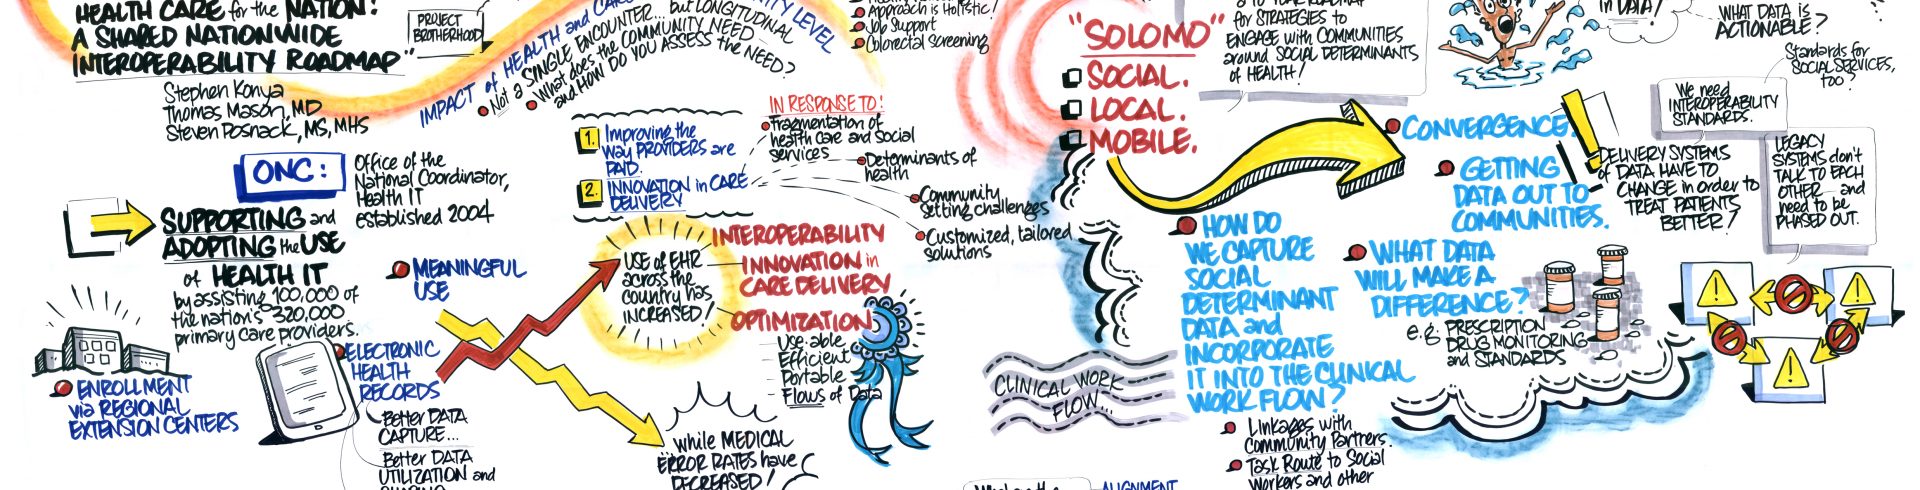 HEALTH CARE for the NATION:
A SHARED NATIONWIDE
INTEROPERABILITY ROADMAP"
Stephen Konya
Thomas Mason, MD
Steven Posnack, MS, MHS
PROJECT
BROTHERHOOD
IMPACT of HEALTH and CARE
LEVEL
Not a SINGLE ENCOUNTER... but LONGITUDINAL
What does the COMMUNITY NEED
and HOW DO YOU ASSESS the NEED?
Approach is Holistic!
Job Support
Colorectal Screening
ONC:
Office of the
National Coordinator,
Health IT
established 2004
SUPPORTING and
ADOPTING the USE
of HEALTH IT
by assisting 100,000 of
the nation's 320,000
primary care providers.
ENROLLMENT
via REGIONAL
EXTENSION CENTERS
MEANINGFUL
USE
ELECTRONIC
HEALTH
RECORDS
Better DATA
CAPTURE...
Better DATA
UTILIZATION and
1. Improving the
way PROVIDERS are
PAID.
2. INNOVATION in CARE
DELIVERY
IN RESPONSE TO:
Fragmentation of
health care and social
services
Determinants of
health
Community
setting challenges
Customized, tailored
solutions
USE of EHR
across the
country has
INCREASED!
INTEROPERABILITY
INNOVATION in
CARE DELIVERY
OPTIMIZATION
Use.able
Efficient
Portable
Flows of Data
while MEDICAL
ERROR RATES have
DECREASED!
"SOLOMO"
SOCIAL.
LOCAL.
MOBILE.
for STRATEGIES to
ENGAGE with COMMUNITIES
around SOCIAL DETERMINANTS
of HEALTH!
CONVERGENCE.
GETTING
DATA OUT TO
COMMUNITIES.
HOW DO
WE CAPTURE
SOCIAL
DETERMINANT
DATA and
INCORPORATE
IT INTO THE CLINICAL
WORK FLOW?
Linkages with
Community Partners.
Task Route to Social
Workers and other
CLINICAL WORK
FLOW...
ALIGNMENT
WHAT DATA
WILL MAKE A
DIFFERENCE?
e.g. PRESCRIPTION
DRUG MONITORING
and STANDARDS
in DATA!
WHAT DATA is
ACTIONABLE?
Standards for
SOCIAL SERVICES,
too?
We need
INTEROPERABILITY
STANDARDS.
DELIVERY SYSTEMS
of DATA HAVE TO
CHANGE in order to
TREAT PATIENTS
BETTER!
LEGACY
SYSTEMS don't
TALK TO EACH
OTHER and
need to be
PHASED OUT.